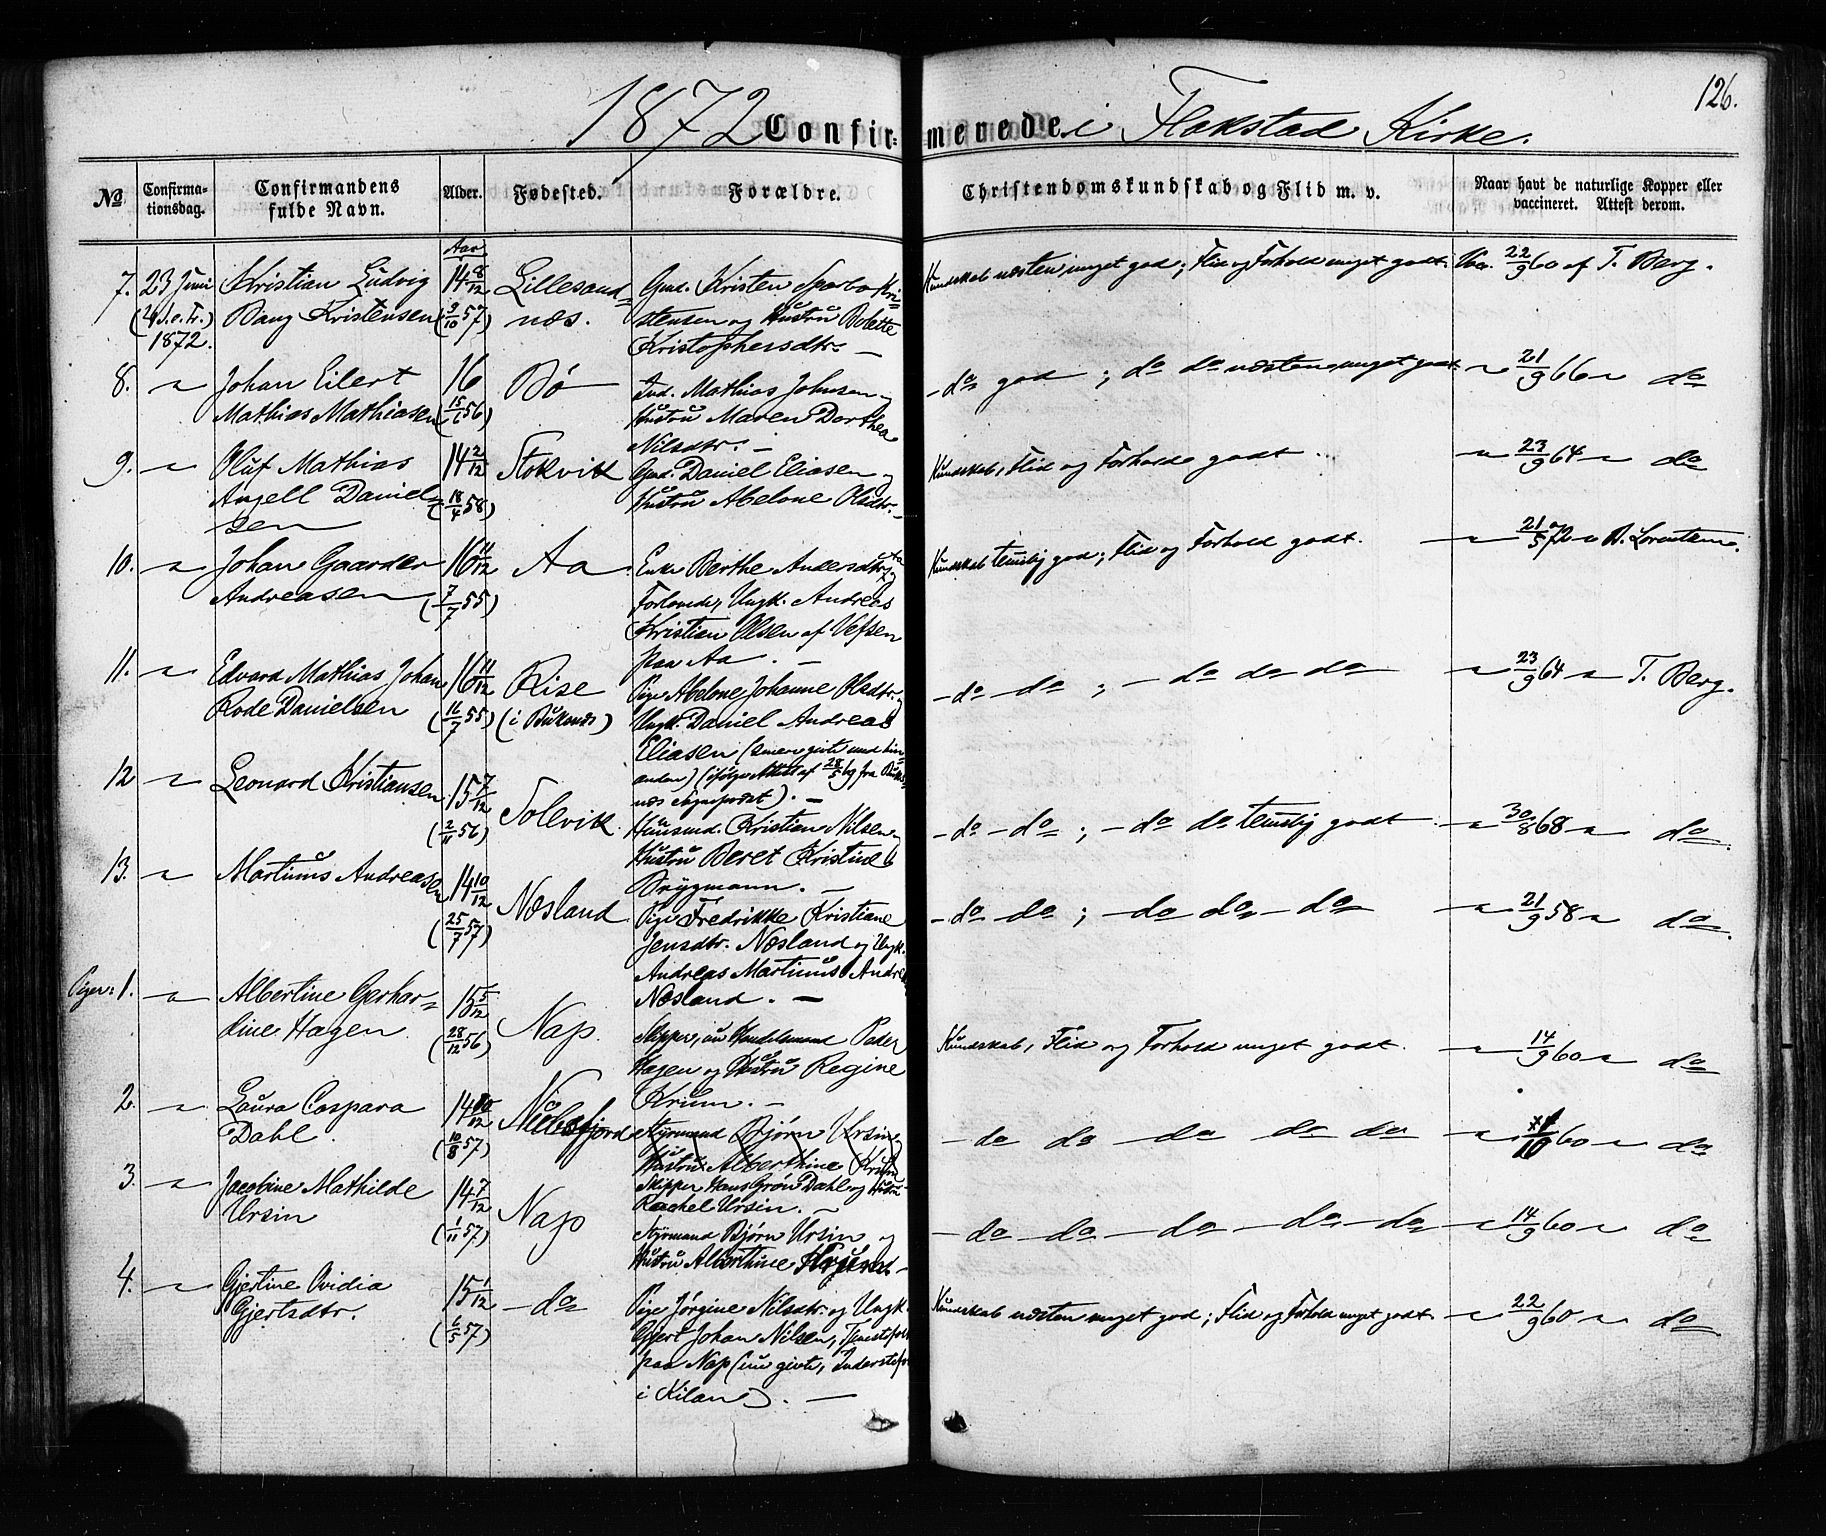 126.
1872 Confirmerede i Flakstad Kirke.
No Confirmationsdag. Confirmandens fulde Navn. Alder. Fødested. Forældre. Christendomskundskab og Flid m. v. Naar havt de naturlige Kopper eller vaccineret. Attest derom.
Aar
7. 23 Juni Kristian Ludvig 14 8/12 Lillesand- Gmd. Kristen Sparbo Kri- Kundskab næsten meget god; Flid og Forhold meget godt. Vac. 22/9 60 af T. Berg.
(4 S. e. Tr.) Bang Kristensen (9/10 57) næs. stensen og Hustru Bolette
1872. Kristophersdtr. —
8. — Johan Eilert 16 Bø Ind. Mathias Johnsen og — do god; do do næsten meget godt — 21/9 66 — do
Mathias Mathiasen (15/6 56) Hustru Maren Dorthea
Nilsdtr. —
9. — Oluf Mathias 14 2/12 Stokvik Gmd. Daniel Eliasen og Kundskab, Flid og Forhold godt — 23/9 64 — do
Angell Daniel- (18/4 58) Hustru Abelone Olsdtr. —
sen
10. — Johan Gaarder 16 11/12 Aa Enke Berthe Andersdtr. Aa og Kundskab temlig god; Flid og Forhold godt. — 21/5 72 — B. Lorentzen.
Andreasen (7/7 55) Forlovede, Ungk. Andreas
Kristian Olsen af Vefsen
paa Aa. —
11. — Edvard Mathias Johan 16 11/12 Rise Pige Abelone Johanne Olsdtr. og — do — do; — do do do — 23/9 64 — T. Berg.
Rode Danielsen (16/7 55) (i Buksnæs) Ungk. Daniel Andreas
Eliasen (senere givte med hin-
anden) (ifølge Attest af 28/5 69 fra Buks-
næs Sognepræst). —
12 — Leonard Kristiansen 15 7/12 Solvik Huusmd. Kristian Nilsen og — do — do; — do do temlig godt — 30/8 68 — do
(2/11 56) Hustru Beret Kristine
Brygmann. —
13. — Martinus Andreasen 14 10/12 Næsland Pige Fredrikke Kristiane — do — do; — do do — do — 21/9 58 — do
(25/7 57) Jensdtr. Næsland og Ungk.
Andreas Martinus Andr
Næsland. —
Piger: 1. — Albertine Gerhar- 15 5/12 Nap Skipper, nu Handelsmand Peder Kundskab, Flid og Forhold meget godt. — 14/9 60 — do
dine Hagen (28/12 56) Hagen og Hustru Regine
Krum. —
2. — Laura Caspara 14 10/12 Styrmand Bjørn Ursin og — do do — do do do — 10 60 — do
Dahl. (10/8 57) Hustru Alberthine Krum
Skipper Hans Grøn Dahl og Hustru
Rachel Ursin. —
3. — Jacobine Mathilde 14 7/12 Nap Styrmand Bjørn Ursin og — do — do — do — do — do — 14/9 60 — do
Ursin (1/11 57) Hustru Alberthine
4. — Gjertine Ovidia 15 1/12 — do Pige Jørgine Nilsdtr. og Ungk. Kundskab næsten meget god; Flid og Forhold meget godt — 22/9 60 — do
Gjertsdtr. (6/5 57) Gjert Johan Nilsen, Tjenestefolk
paa Nap (nu givte, Inderstefo
i Kilan). —